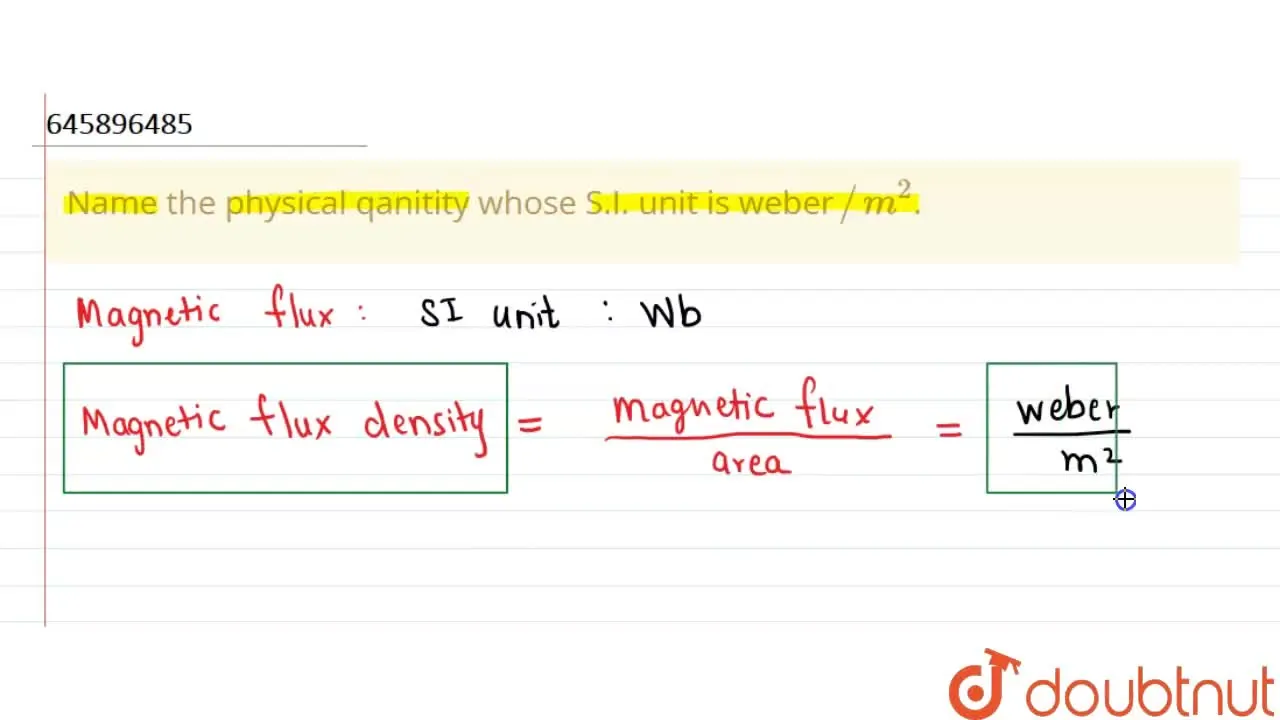 645896485
Name the physical qanitity whose S.I. unit is weber / m².
Magnetic flux : SI unit : Wb
Magnetic flux density = magnetic flux / area = weber / m²
doubtnut